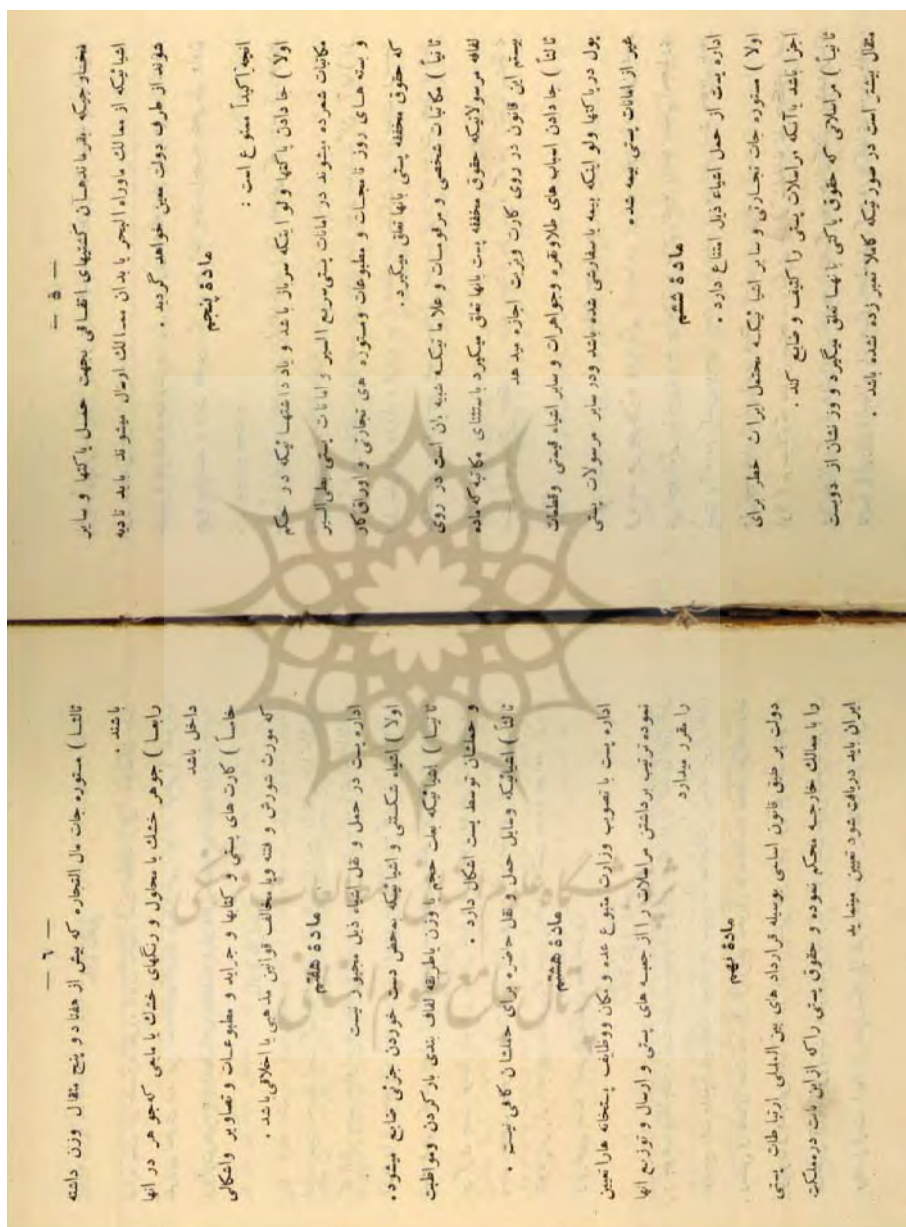 — ۵ —
مخارجیکه بفرماندهان کشتیهای اتفاقی بجهت حمل پاکتها و سایر
اشیائیکه از ممالک ماوراء البحر یا بدان ممالک ارسال میشوند باید تادیه
شوند از طرف دولت معین خواهد گردید .
مادهٔ پنجم
انچه اکیداً ممنوع است :
اولا ) جا دادن پاکتها ولو اینکه سرباز باشد و یاد داشتهائیکه در حکم
مکاتبات شمرده میشوند در امانات پستی سریع السیر و امانات پستی بطی السیر
و بسته های روز نامجات و مطبوعات و مستوره های تجارتی و اوراق کار
که حقوق مخففه پستی بانها تعلق میگیرد .
ثانیاً ) مکاتبات شخصی و مرقومات و علاماتیکه شبیه بان است در روی
لفافه مرسولاتیکه حقوق مخففه پست بانها تعلق میگیرد باستثنای مکاتبه که ماده
بیستم این قانون در روی کارت ویزیت اجازه میدهد
ثالثاً ) جا دادن اسباب های طلا و نقره و جواهرات و سایر اشیاء قیمتی و قطعات
پول در پاکتها ولو اینکه بیمه یا سفارشی شده باشد و در سایر مرسولات پستی
غیر از امانات پستی بیمه شده
مادهٔ ششم
اداره پست از حمل اشیاء ذیل امتناع دارد .
اولا ) مستوره جات تجارتی و سایر اشیائیکه محتمل ایراث خطر برای
اجزا باشد یا آنکه مراسلات پستی را کثیف و ضایع کند .
ثانیاً ) مراسلاتی که حقوق پاکتی بانها تعلق میگیرد و وزنشان از دویست
مثقال بیشتر است در صورتیکه کاملا تمبر زده نشده باشد .
— ٦ —
ثالثا ) مستوره جات مال التجاره که بیش از هفتاد و پنج مثقال وزن داشته
باشند .
رابعا ) جوهر خشك یا محلول و رنگهای خشك یا مایعی که جوهر در انها
داخل باشد
خامساً ) کارت های پستی و کتابها و جراید و مطبوعات و تصاویر و اشکالی
که مورث شورش و فتنه و یا مخالف قوانین مذهبی یا اخلاقی باشد .
مادهٔ هفتم
اداره پست در حمل و نقل اشیاء ذیل مجبور نیست
اولا ) اشیاء شکستنی و اشیائیکه بمحض دست خوردن جزئی ضایع میشود .
ثانیا ) اشیائیکه بعلت حجم یا وزن یا طریقه لفاف بندی بار کردن و مواظبت
و حملشان توسط پست اشکال دارد .
ثالثاً ) اشیائیکه وسایل حمل و نقل حاضره برای حملشان کافی نیست .
مادهٔ هشتم
اداره پست با تصویب وزارت متبوع عده و مکان و وظایف پستخانه هارا تعیین
نموده ترتیب برداشتن مراسلات را از جعبه های پستی و ارسال و توزیع انها
را مقرر میدارد
مادهٔ نهم
دولت بر طبق قانون اساسی بوسیله قرارداد های بین المللی ارتباطات پستی
را با ممالك خارجه محکم نموده و حقوق پستی را که از این بابت در مملکت
ایران باید دریافت شود تعیین مینماید
پژوهشگاه علوم انسانی و مطالعات فرهنگی
پرتال جامع علوم انسانی